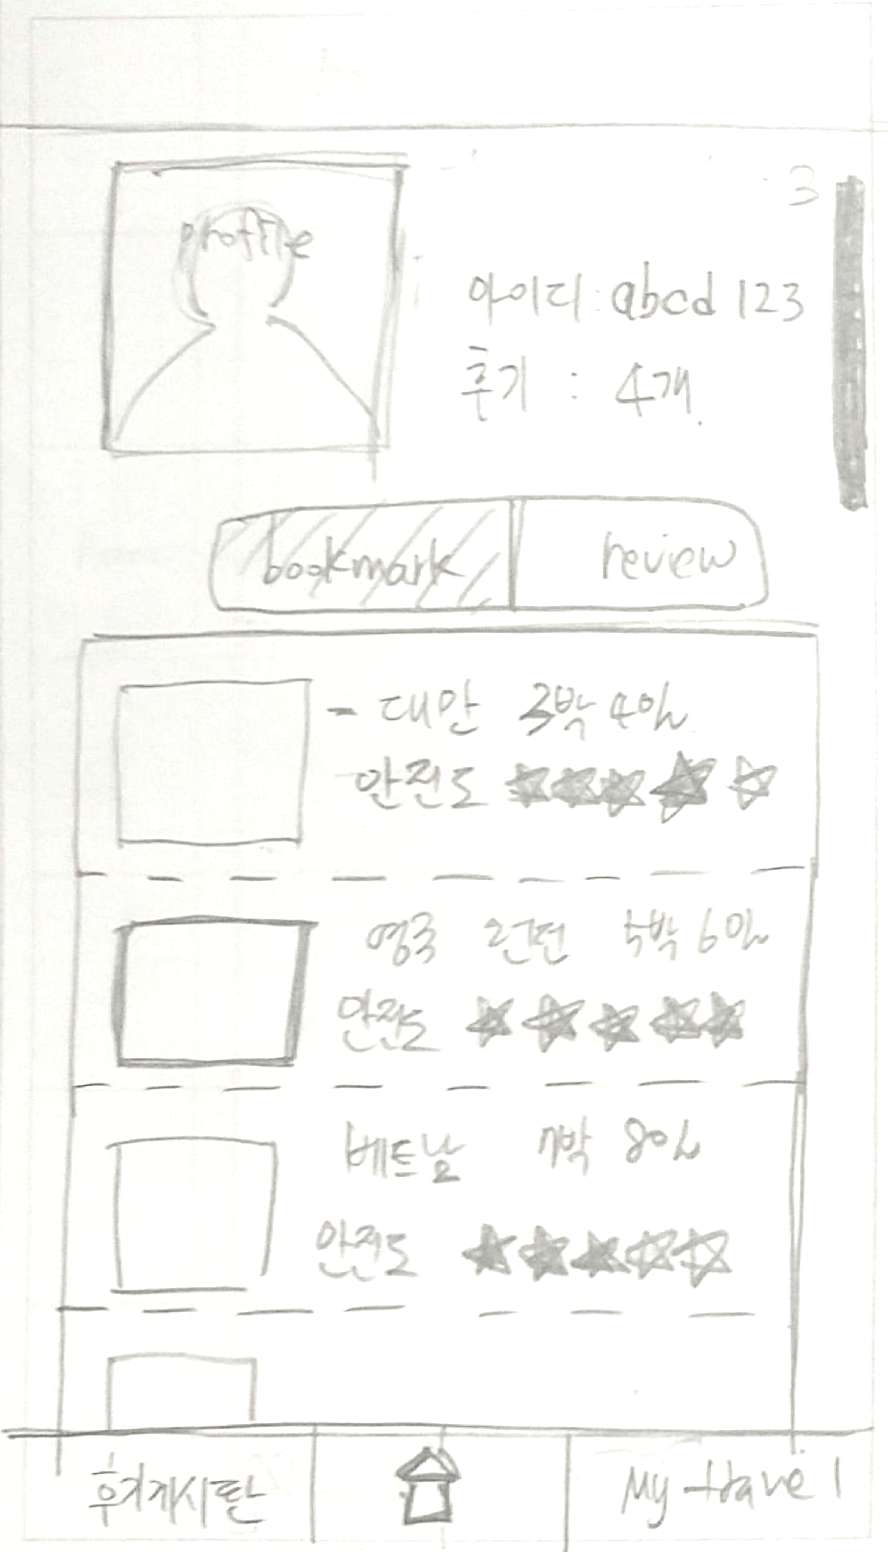 profile
아이디 : abcd 123
후기 : 4개
bookmark
review
- 대만 3박 4일
안전도 ★★★★☆
영국 런던 5박 6일
안전도 ★★★★★
베트남 7박 8일
안전도 ★★★☆☆
후기게시판
My travel